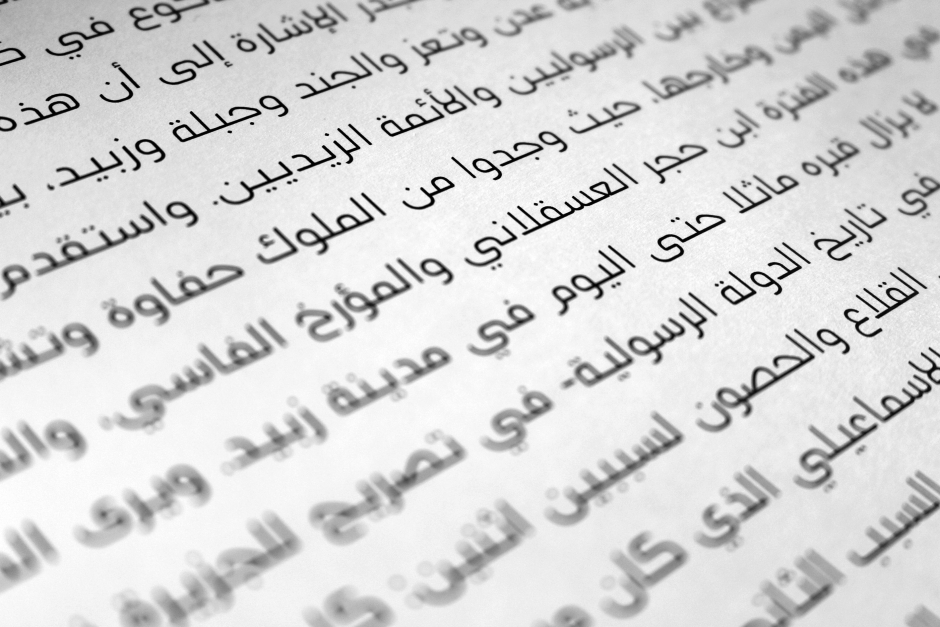 في
الإشارة إلى أن هذه
عدن وتعز والجند وجبلة وزبيد،
بين الرسوليين والأئمة الزيديين. واستقدم
اليمن وخارجها. حيث وجدوا من الملوك حفاوة
في هذه الفترة ابن حجر العسقلاني والمؤرخ الفاسي،
لا يزال قبره ماثلا حتى اليوم في مدينة زبيد ويرى
في تاريخ الدولة الرسولية- في تصريح للجزيرة
القلاع والحصون لسببين اثنين،
الإسماعيلي الذي كان
السبب الثاني